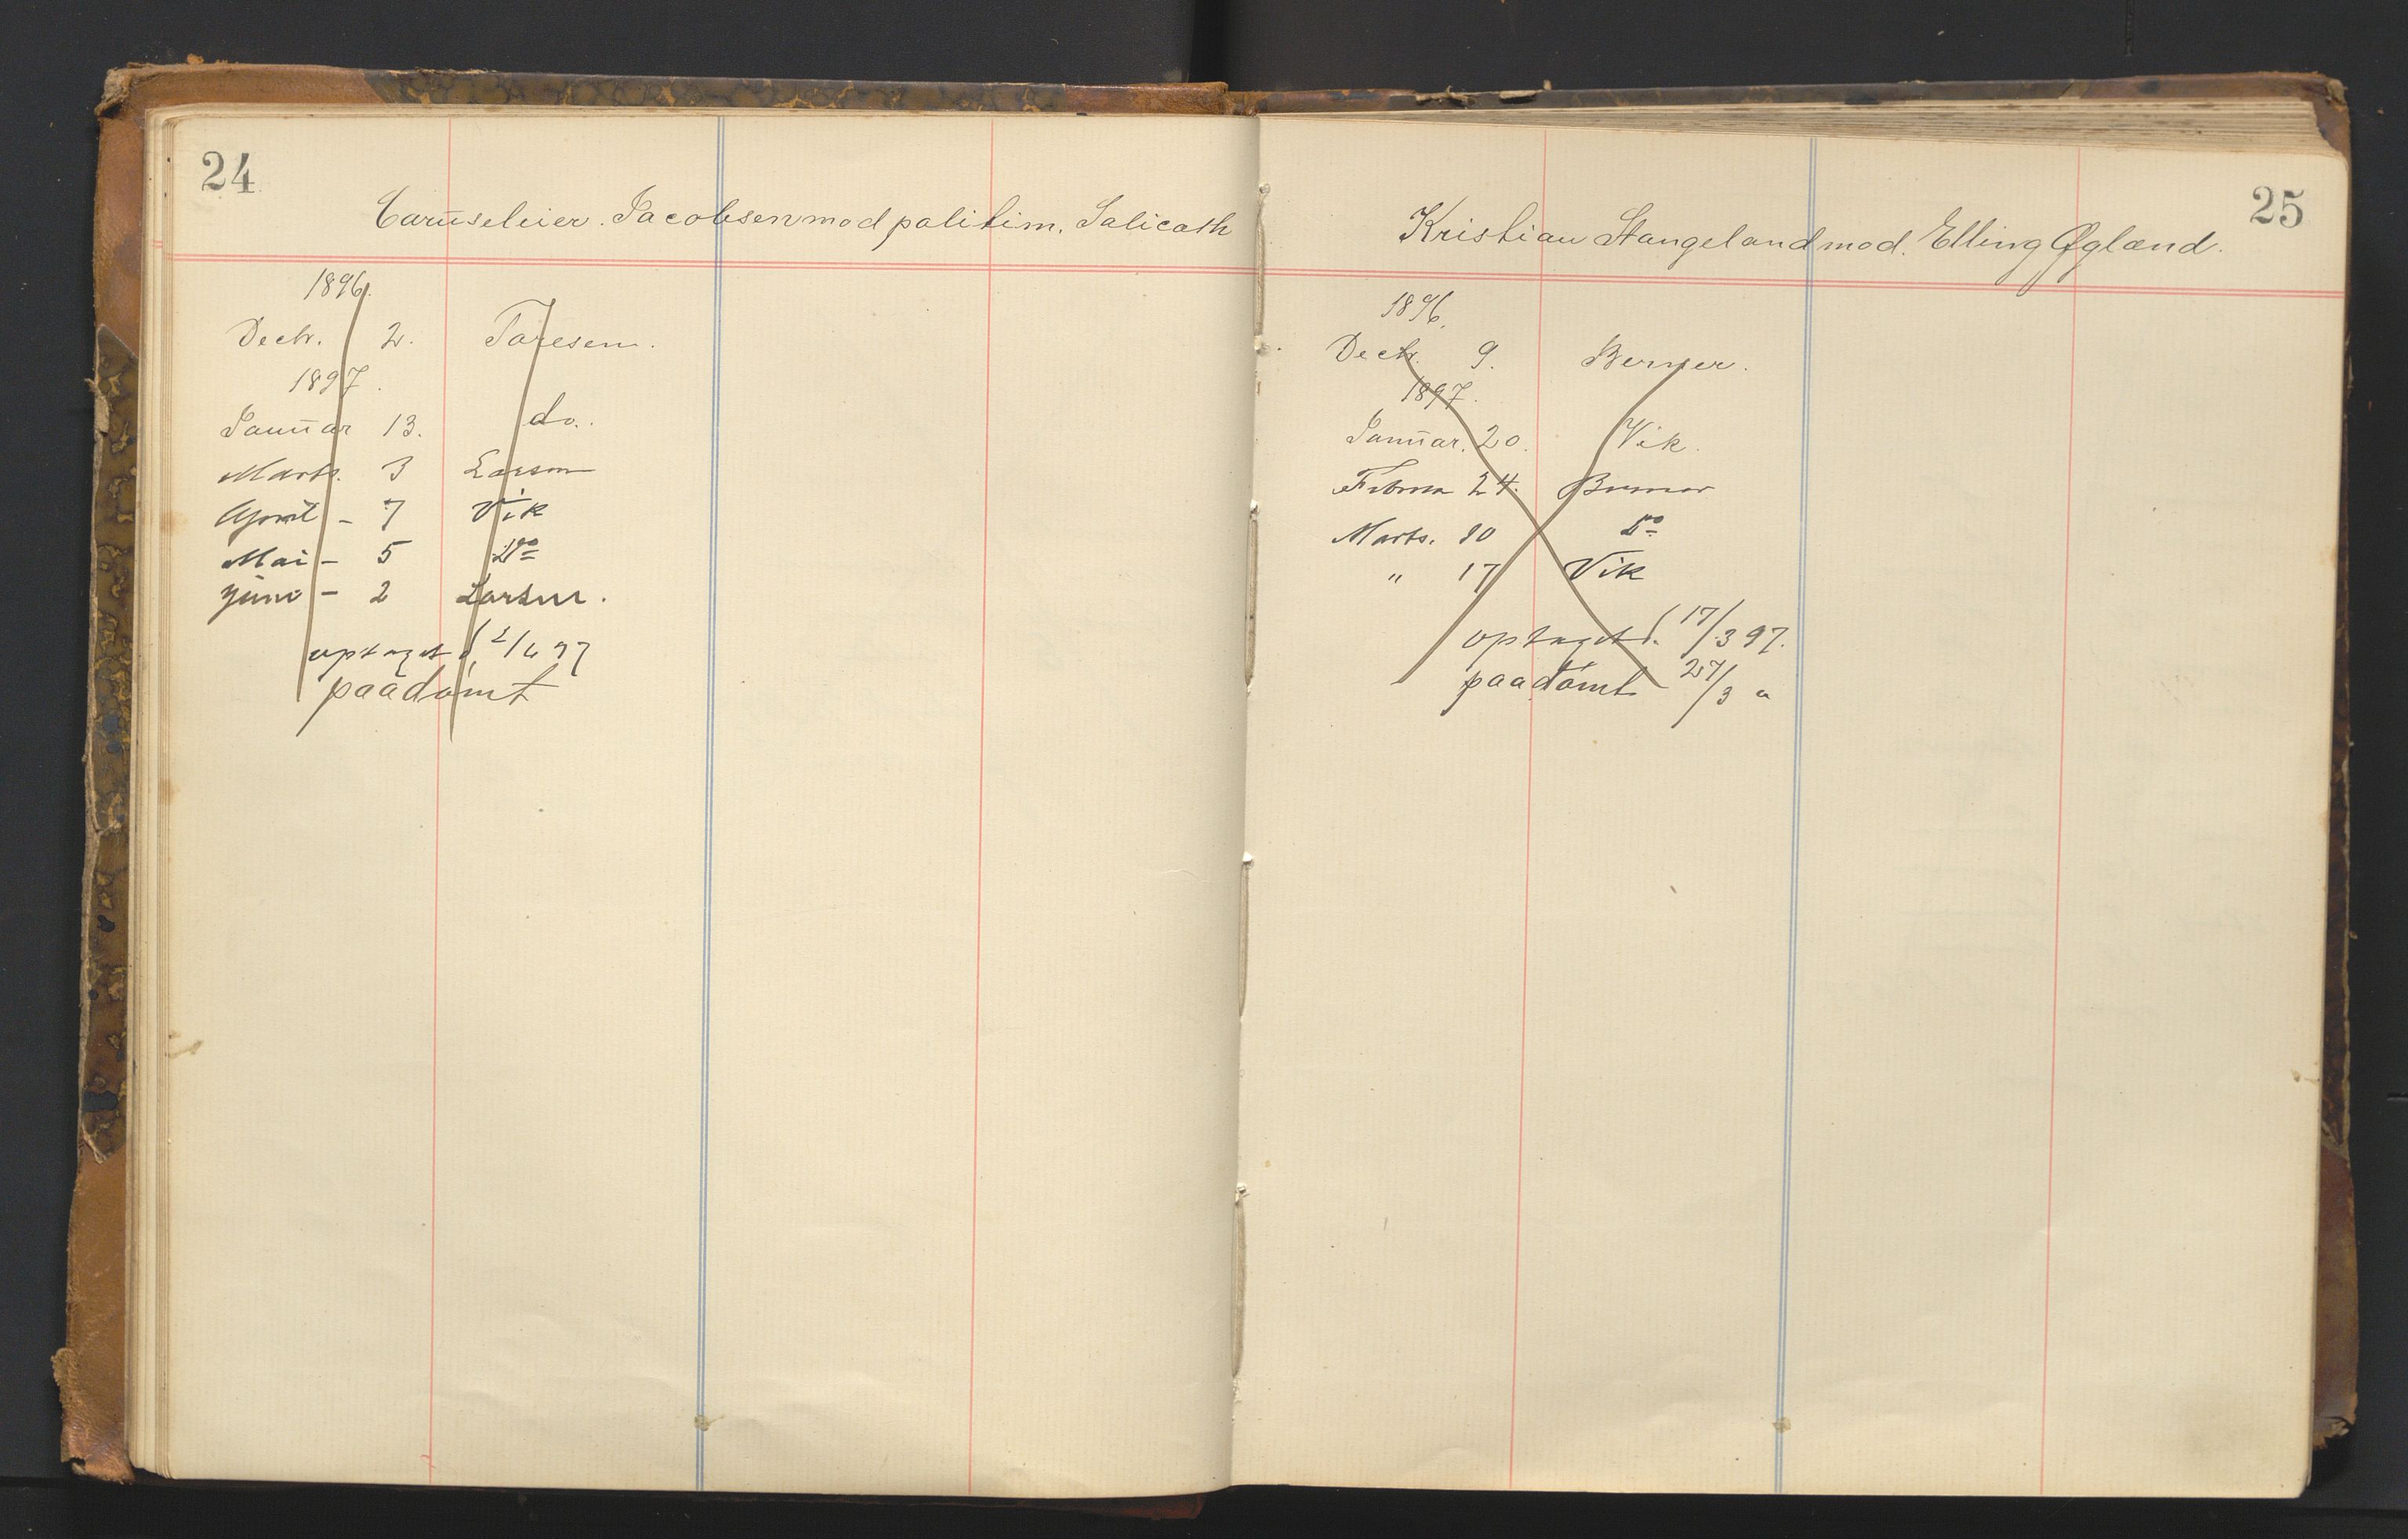 24
Caruseleier. Jacobsen mod politim. Salicath
1896.
Decbr. 2. Taresen.
1897.
Januar 13. do.
Marts. 3 Larsen
April - 7 Vik
Mai - 5 Do
Juni - 2 Larsen.
optaget d. 2/6 97
paadömt
25
Kristian Stangeland mod. Elling Øgland.
1896.
Decbr. 9. Berner.
1897.
Januar. 20. Vik.
Februar 24. Berner
Marts. 10 Do
" 17 Vik
optaget d. 17/3 97.
paadömt 27/3 "